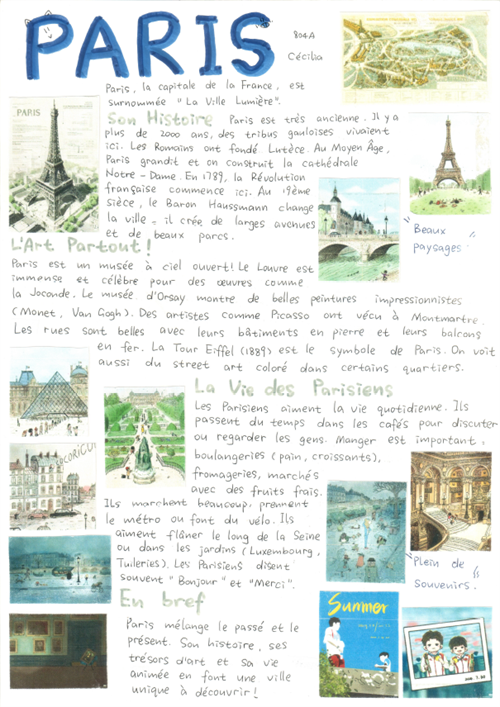 PARIS
804A
Cécilia
Paris, la capitale de la France, est
surnommée "La Ville Lumière".
Son Histoire Paris est très ancienne. Il y a
plus de 2000 ans, des tribus gauloises vivaient
ici. Les Romains ont fondé Lutèce. Au Moyen Âge,
Paris grandit et on construit la cathédrale
Notre-Dame. En 1789, la Révolution
française commence ici. Au 19ème
sièce, le Baron Haussmann change
la ville : il crée de larges avenues
et de beaux parcs.
PARIS
"Beaux
paysages"
L'Art Partout!
Paris est un musée à ciel ouvert! Le Louvre est
immense et célèbre pour des œuvres comme
la Joconde. Le musée d'Orsay montre de belles peintures impressionnistes
(Monet, Van Gogh). Des artistes comme Picasso ont vécu à Montmartre.
Les rues sont belles avec leurs bâtiments en pierre et leurs balcons
en fer. La Tour Eiffel (1889) est le symbole de Paris. On voit
aussi du street art coloré dans certains quartiers.
La Vie des Parisiens
Les Parisiens aiment la vie quotidienne. Ils
passent du temps dans les cafés pour discuter
ou regarder les gens. Manger est important :
boulangeries (pain, croissants),
fromageries, marchés
avec des fruits frais.
Ils marchent beaucoup, prennent
le métro ou font du vélo. Ils
aiment flâner le long de la Seine
ou dans les jardins (Luxembourg,
Tuileries). Les Parisiens disent
souvent "Bonjour" et "Merci".
"Plein de
Souvenirs."
En bref
Paris mélange le passé et le
présent. Son histoire, ses
trésors d'art et sa vie
animée en font une ville
unique à découvrir!
Summer